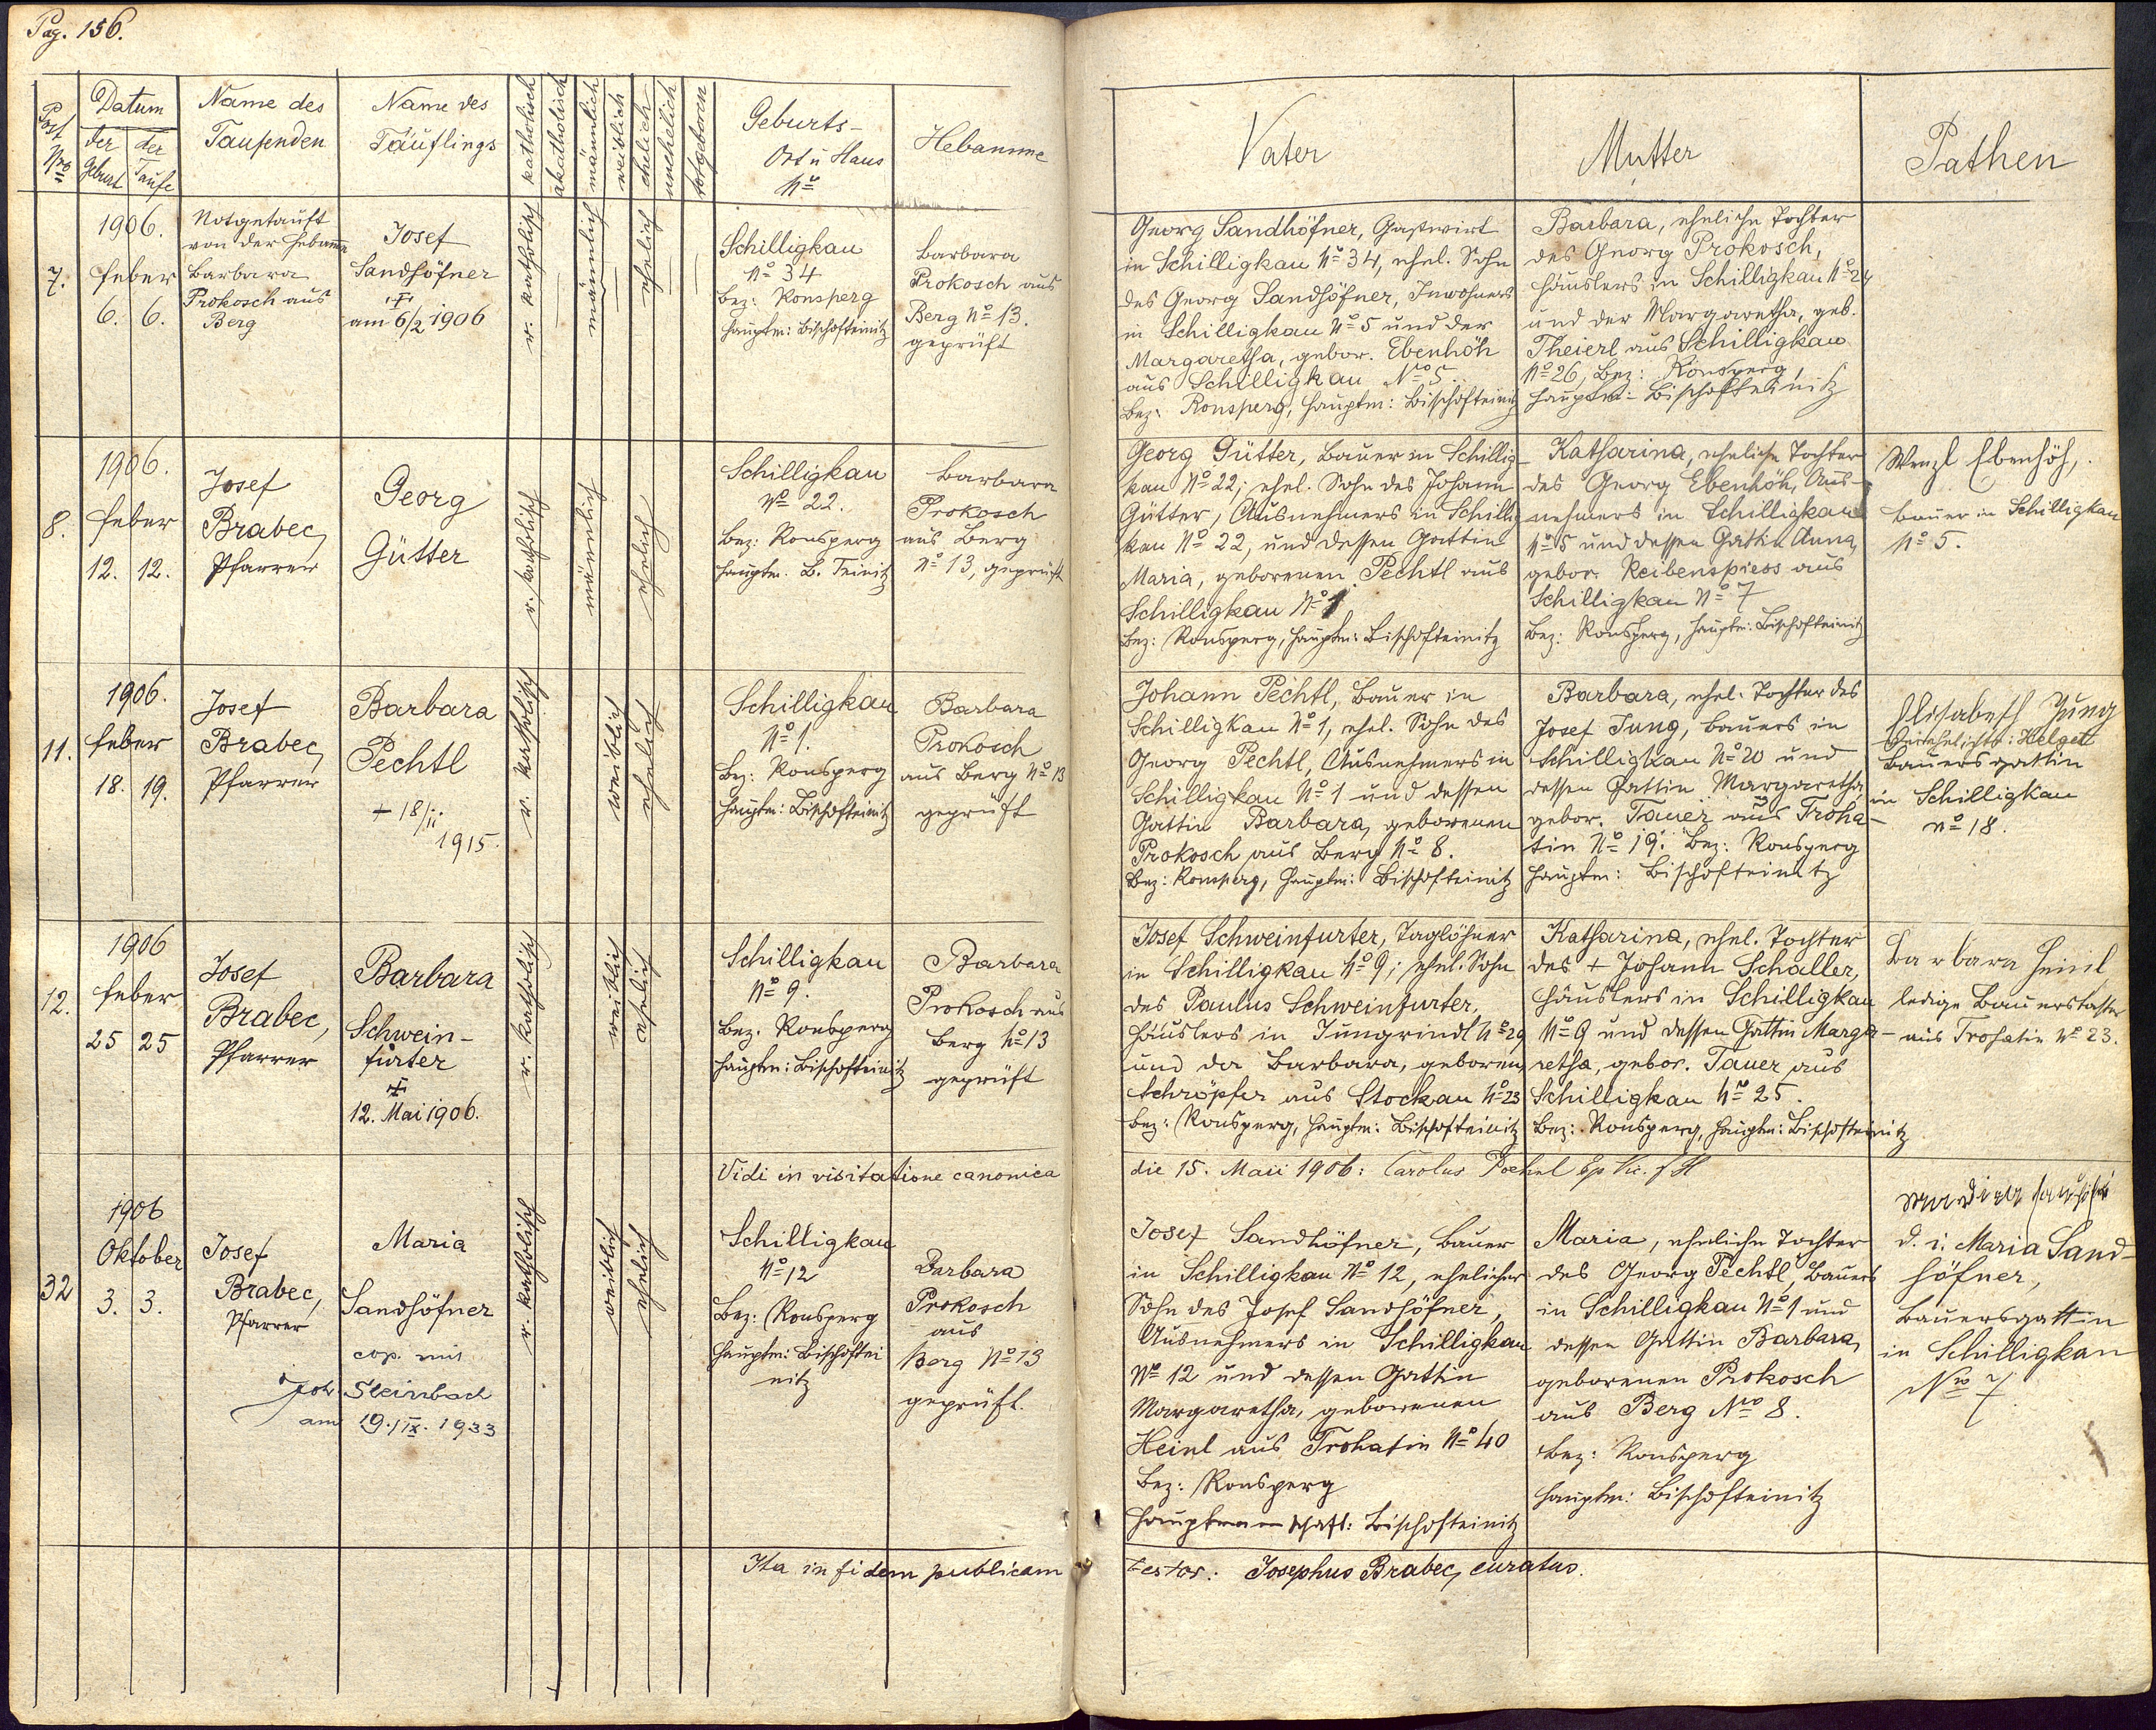 Pag. 156.
Post Nro
Datum
der Geburt
der Taufe
Name des
Taufenden
Name des
Täuflings
katholisch
akatholisch
männlich
weiblich
ehelich
unehelich
totgeboren
Geburts-
Ort u Haus
No
Hebamme
Vater
Mutter
Pathen
7.
1906.
feber
6. 6.
Notgetauft
von der Hebamme
Barbara
Prokosch aus
Berg
Josef
Sandhöfner
am 6/2 1906
r. katholisch
männlich
ehelich
Schilligkau
No 34
Bez: Ronsperg
Hauptm: Bischofteinitz
Barbara
Prokosch aus
Berg No 13.
geprüft
Georg Sandhöfner, Gastwirt
in Schilligkau No 34, ehel. Sohn
des Georg Sandhöfner, Inwohners
in Schilligkau No 5 und der
Margaretha, gebor. Ebenhöh
aus Schilligkau No 5.
Bez: Ronsperg, Hauptm: Bischofteinitz
Barbara, eheliche Tochter
des Georg Prokosch,
Häuslers in Schilligkau No 24
und der Margaretha, geb.
Theierl aus Schilligkau
No 26, Bez: Ronsperg,
Hauptm: Bischofteinitz
8.
1906.
feber
12. 12.
Josef
Brabec,
Pfarrer
Georg
Gütter
r. katholisch
männlich
ehelich
Schilligkau
No 22.
Bez: Ronsperg
Hauptm. B. Teinitz
Barbara
Prokosch
aus Berg
No 13, geprüft
Georg Gütter, Bauer in Schillig-
kau No 22; ehel. Sohn des Johann
Gütter, Ausnehmers in Schillig
kau No 22, und dessen Gattin
Maria, geborenen Pechtl aus
Schilligkau No 1
Bez: Ronsperg, Hauptm: Bischofteinitz
Katharina, eheliche Tochter
des Georg Ebenhöh, Aus-
nehmers in Schilligkau
No 5 und dessen Gattin Anna,
gebor. Reibenspiess aus
Schilligkau No 7
Bez: Ronsperg, Hauptm: Bischofteinitz
Wenzl Ebenhöh,
Bauer in Schilligkau
No 5.
11.
1906.
feber
18. 19.
Josef
Brabec,
Pfarrer
Barbara
Pechtl
+ 18/II
1915.
r. katholisch
weiblich
ehelich
Schilligkau
No 1.
Bez: Ronsperg
Hauptm: Bischofteinitz
Barbara
Prokosch
aus Berg No 13
geprüft
Johann Pechtl, Bauer in
Schilligkau No 1, ehel. Sohn des
Georg Pechtl, Ausnehmers in
Schilligkau No 1 und dessen
Gattin Barbara, geborenen
Prokosch aus Berg No 8.
Bez: Ronsperg, Hauptm: Bischofteinitz
Barbara, ehel. Tochter des
Josef Jung, Bauers in
Schilligkau No 20 und
dessen Gattin Margaretha
gebor. Tauer aus Troha-
tin No 19. Bez: Ronsperg
Hauptm: Bischofteinitz
Elisabeth Jung
verehelichte: Helget
Bauersgattin
in Schilligkau
No 18.
12.
1906
feber
25 25
Josef
Brabec,
Pfarrer
Barbara
Schwein-
furter
12. Mai 1906.
r. katholisch
weiblich
ehelich
Schilligkau
No 9.
Bez. Ronsperg
Hauptm: Bischofteinitz
Barbara
Prokosch aus
Berg No 13
geprüft
Josef Schweinfurter, Taglöhner
in Schilligkau No 9; ehel. Sohn
des Paulus Schweinfurter,
Häuslers in Jungrindl No 29
und der Barbara, geboren
Schröpfer aus Stockau No 23
Bez: Ronsperg, Hauptm: Bischofteinitz
Katharina, ehel. Tochter
des + Johann Schaller,
Häuslers in Schilligkau
No 9 und dessen Gattin Marga-
retha, gebor. Tauer aus
Schilligkau No 25.
Bez: Ronsperg, Hauptm: Bischofteinitz
Barbara Heinl
ledige Bauerstochter
aus Trohatin No 23.
Vidi in visitatione canonica
die 15. Maii 1906: Carolus
32
1906
Oktober
3. 3.
Josef
Brabec,
Pfarrer
Maria
Sandhöfner
cop. mit
Joh. Steinbach
am 19./IX. 1933
r. katholisch
weiblich
ehelich
Schilligkau
No 12
Bez: Ronsperg
Hauptm: Bischoftei
nitz
Barbara
Prokosch
aus
Berg No 13
geprüft.
Josef Sandhöfner, Bauer
in Schilligkau No 12, ehelicher
Sohn des Josef Sandhöfner,
Ausnehmers in Schilligkau
No 12 und dessen Gattin
Margaretha, geborenen
Heinl aus Trohatin No 40
Bez: Ronsperg
Hauptmannschaft: Bischofteinitz
Maria, eheliche Tochter
des Georg Pechtl, Bauers
in Schilligkau No 1 und
dessen Gattin Barbara,
geborenen Prokosch
aus Berg Nro 8.
Bez: Ronsperg
Hauptm: Bischofteinitz
d. i. Maria Sand-
höfner,
Bauersgattin
in Schilligkau
Nro 7
Ita in fidem publicam
testor: Josephus Brabec, curatus.